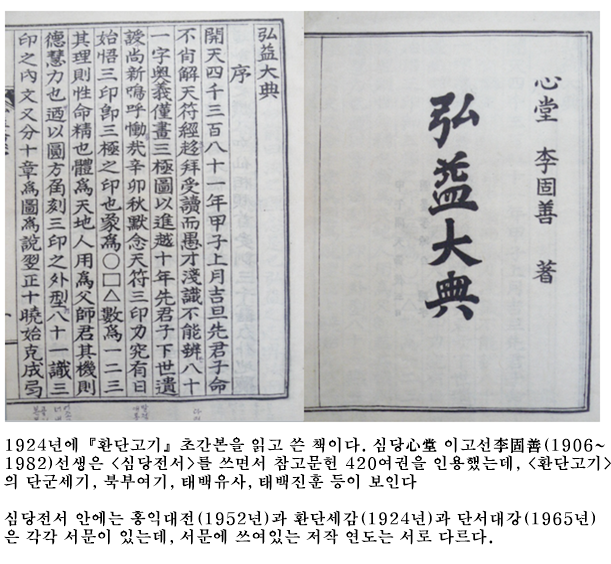 心堂 李固善 著
弘益大典
弘益大典
序
開天四千三百八十一年甲子上月吉旦先君子命
不肖解天符經趍拜受讀而愚才淺識不能辨八十
一字奧義僅畫三極圖以進越十年先君子下世遺
尚新嗚呼慟哉辛卯秋默念天符三印力究有日
始悟三印卽三極之印也象爲○□△數爲一二三
其理則性命精也體爲天地人用爲父師君其機則
德慧力也迺以圓方角刻三印之外型八十一識三
印之內文又分十章爲圖爲說翌正十曉始克成
1924년에 『환단고기』 초간본을 읽고 쓴 책이다. 심당心堂 이고선李固善(1906~
1982)선생은 <심당전서>를 쓰면서 참고문헌 420여권을 인용했는데, <환단고기>
의 단군세기, 북부여기, 태백유사, 태백진훈 등이 보인다
심당전서 안에는 홍익대전(1952년)과 환단세감(1924년)과 단서대강(1965년)
은 각각 서문이 있는데, 서문에 쓰여있는 저작 연도는 서로 다르다.